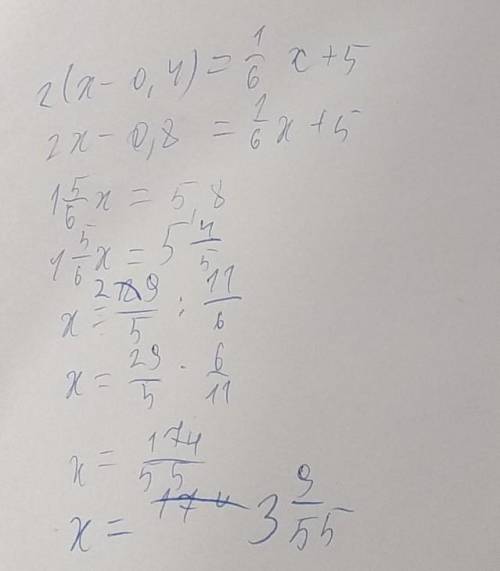 2(x - 0,4) = 1/6 x + 5
2x - 0,8 = 1/6 x + 5
1 5/6 x = 5,8
1 5/6 x = 5 4/5
x = 29/5 : 11/6
x = 29/5 · 6/11
x = 174/55
x = 3 9/55